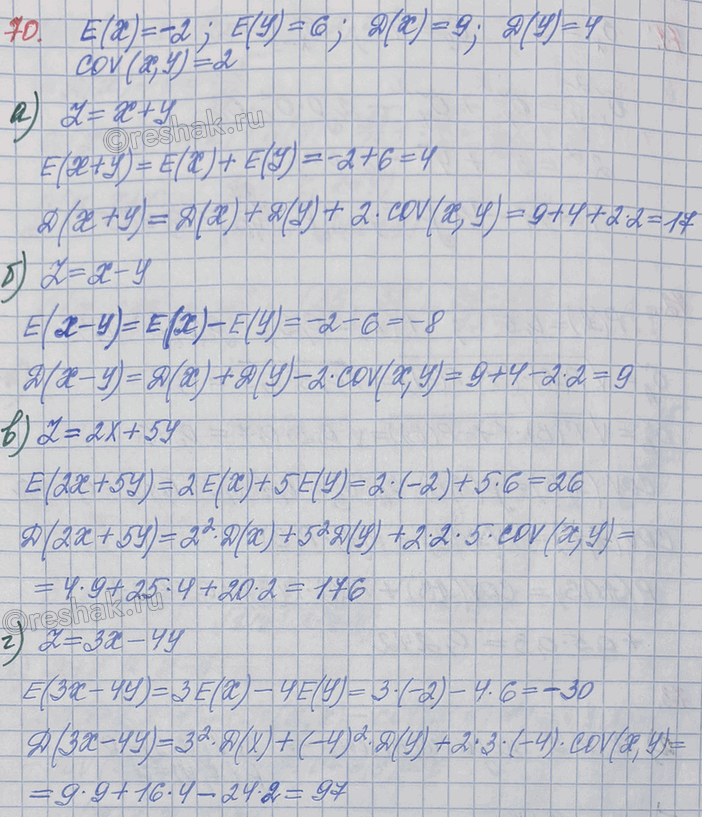 70. E(x)=-2; E(y)=6; D(x)=9; D(y)=4
cov(x,y)=2
а) Z=x+y
©reshak.ru
E(x+y)=E(x)+E(y)=-2+6=4
D(x+y)=D(x)+D(y)+2·cov(x,y)=9+4+2·2=17
б) Z=x-y
E(x-y)=E(x)-E(y)=-2-6=-8
D(x-y)=D(x)+D(y)-2·cov(x,y)=9+4-2·2=9
в) Z=2x+5y
E(2x+5y)=2E(x)+5E(y)=2·(-2)+5·6=26
D(2x+5y)=2²·D(x)+5²D(y)+2·2·5·cov(x,y)=
=4·9+25·4+20·2=176
©reshak.ru
г) Z=3x-4y
E(3x-4y)=3E(x)-4E(y)=3·(-2)-4·6=-30
D(3x-4y)=3²·D(x)+(-4)²·D(y)+2·3·(-4)·cov(x,y)=
=9·9+16·4-24·2=97